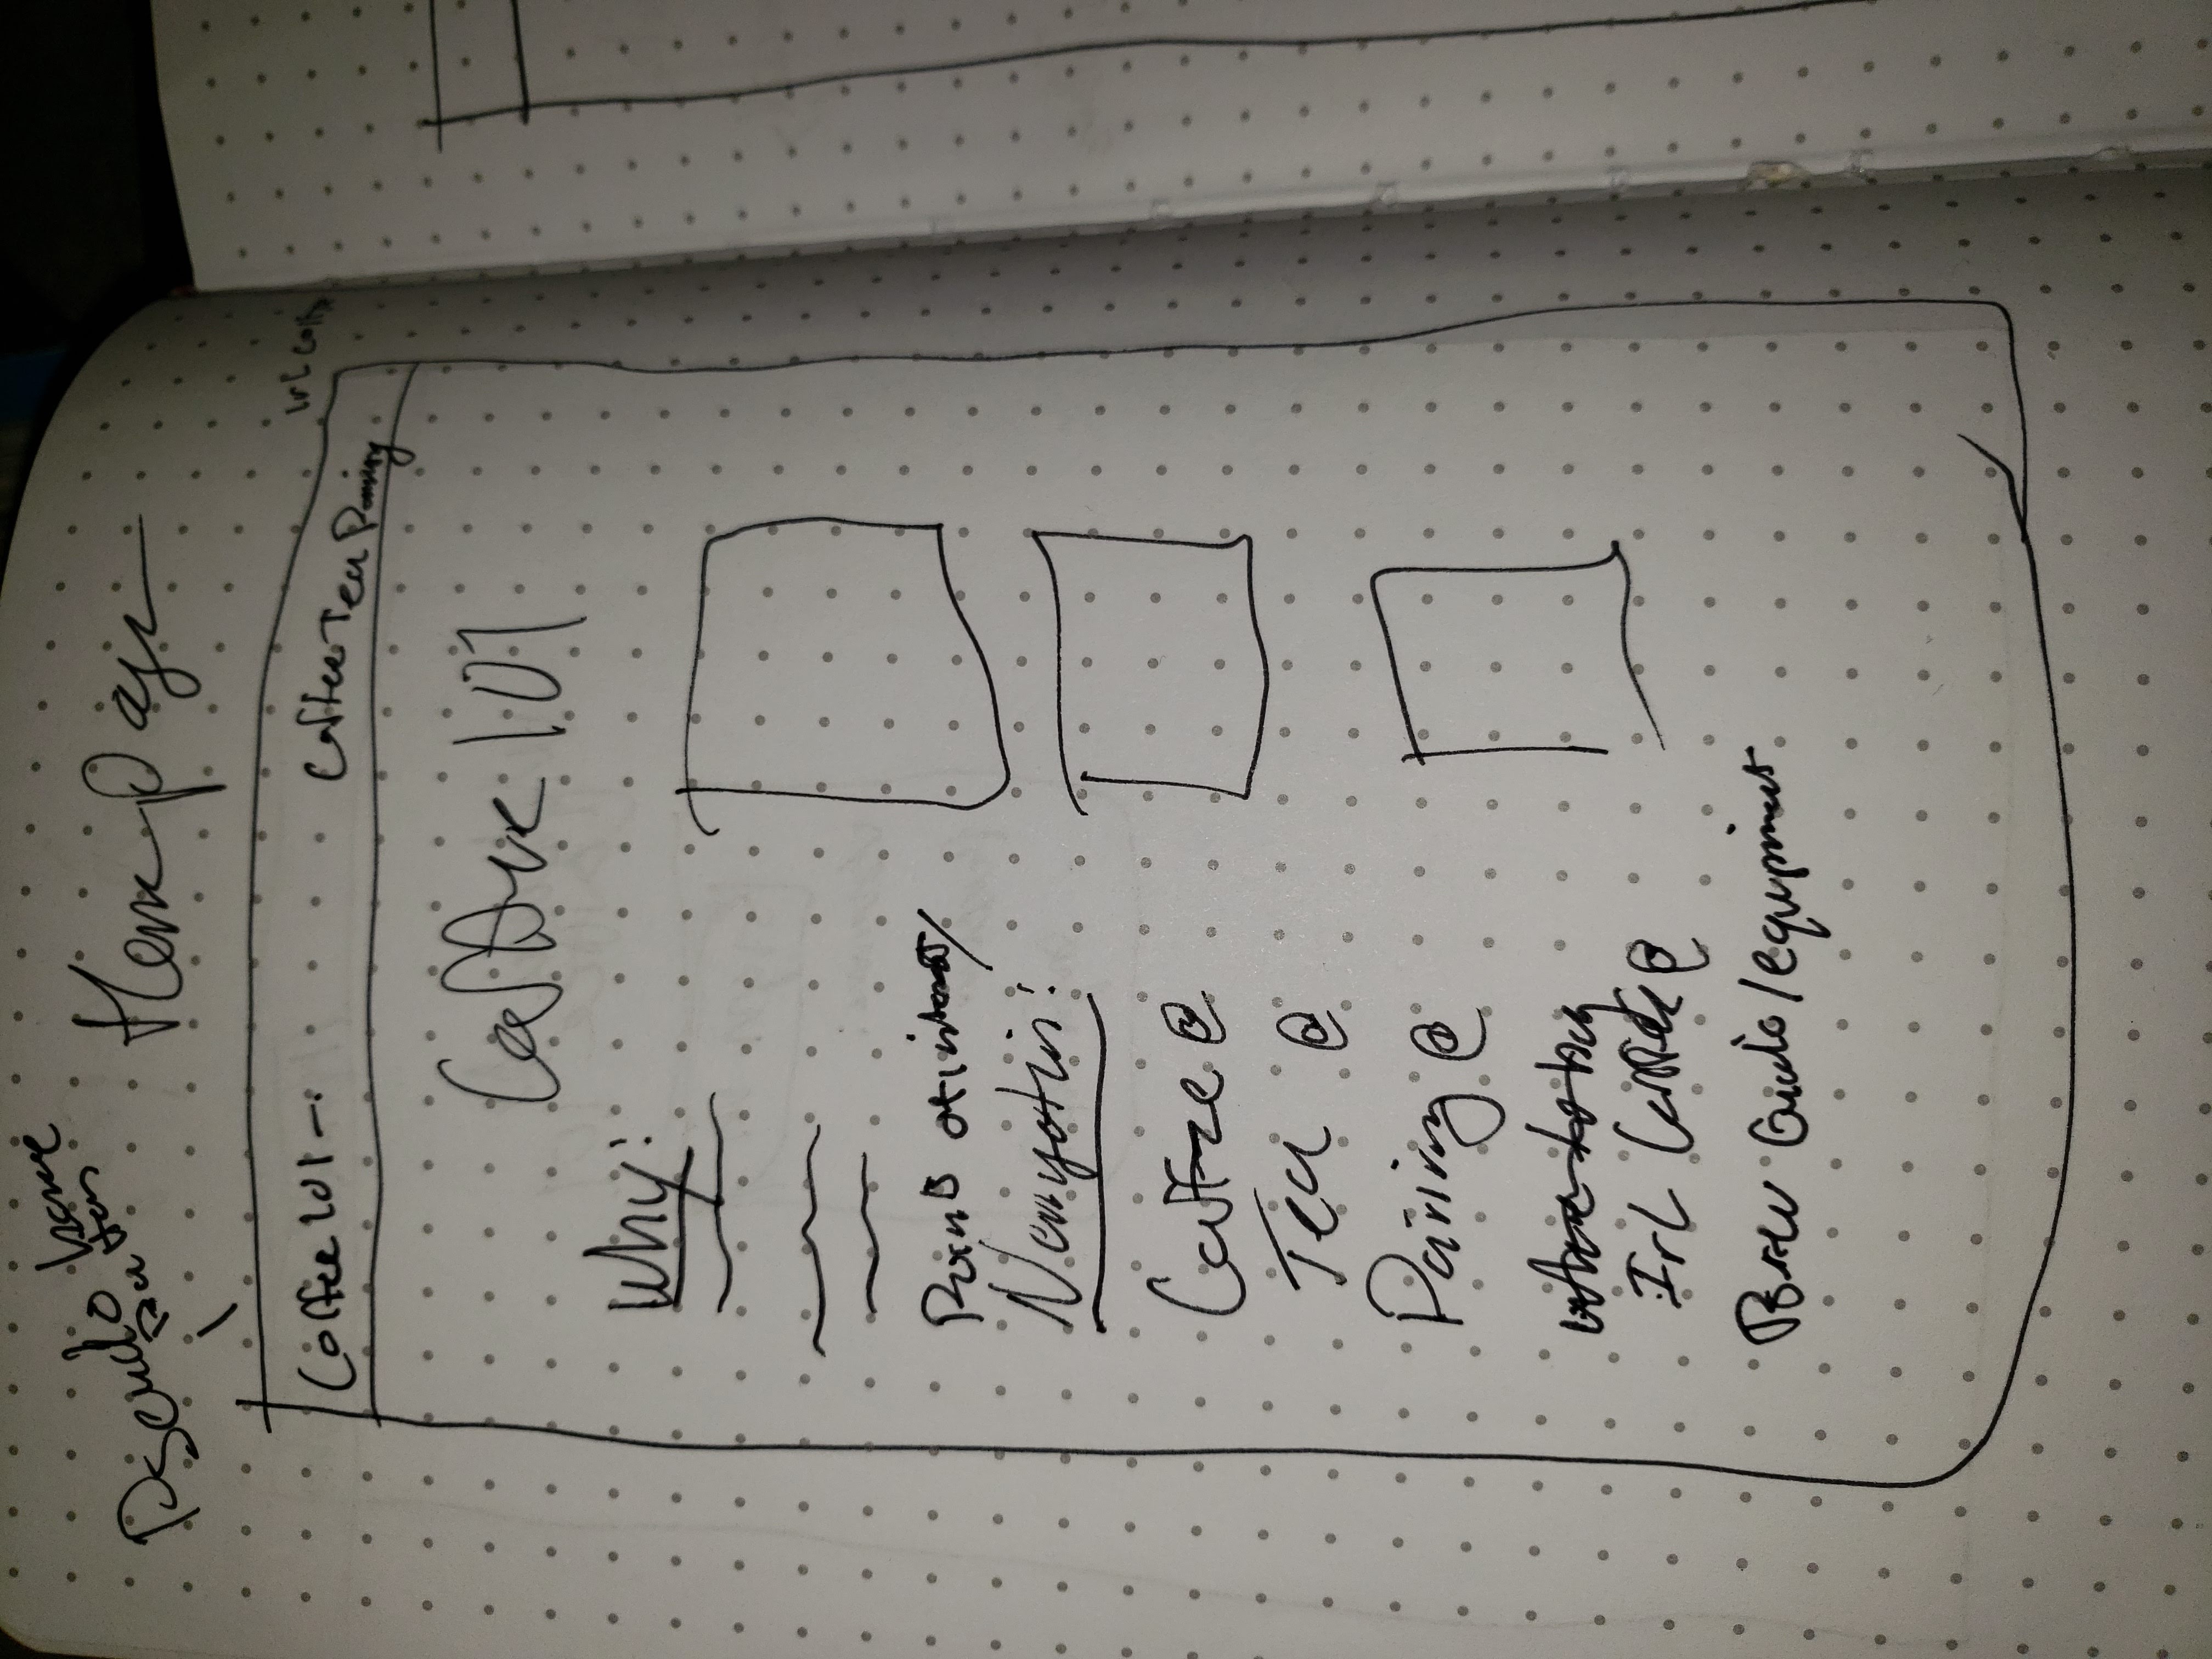 Pseudo home
button
Home page
Coffee 101 -
Coffee Tea Pairing
Irl Coffee
Coffee 101
Why:
Points of interest/
Navigation:
Coffee @
Tea @
Pairing @
where to buy
Irl Coffee @
Brew Guide/equipment